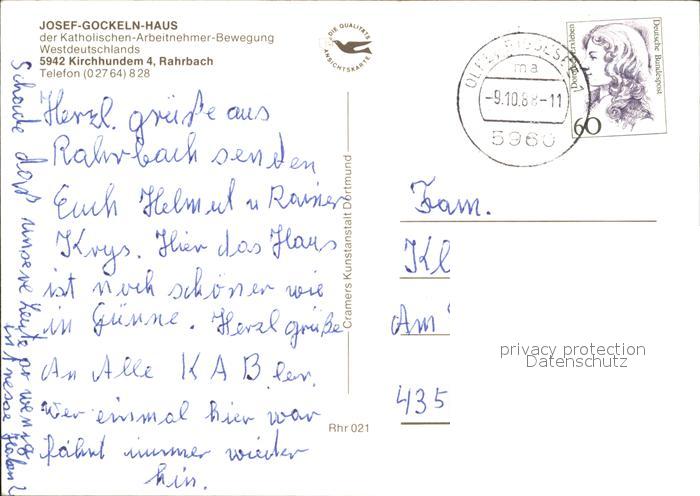 JOSEF-GOCKELN-HAUS
der Katholischen-Arbeitnehmer-Bewegung
Westdeutschlands
5942 Kirchhundem 4, Rahrbach
Telefon (02764) 828
DIE QUALITÄTS
ANSICHTSKARTE
Herzl. grüße aus
Rahrbach senden
Euch Helmut u Rainer
Krys. Hier das Haus
ist noch schöner wie
in Günne. Herzl grüße
An Alle K A B ler.
Wer einmal hier war
fährt immer wieder
hin.
Schade dass unsere Leute so wenig
Interesse haben
Cramers Kunstanstalt Dortmund
Rhr 021
OLPE, BIGGESEE 1
ma
-9.10.88-11
5960
Deutsche Bundespost
60
Fam.
Kl
Am
435
privacy protection
Datenschutz